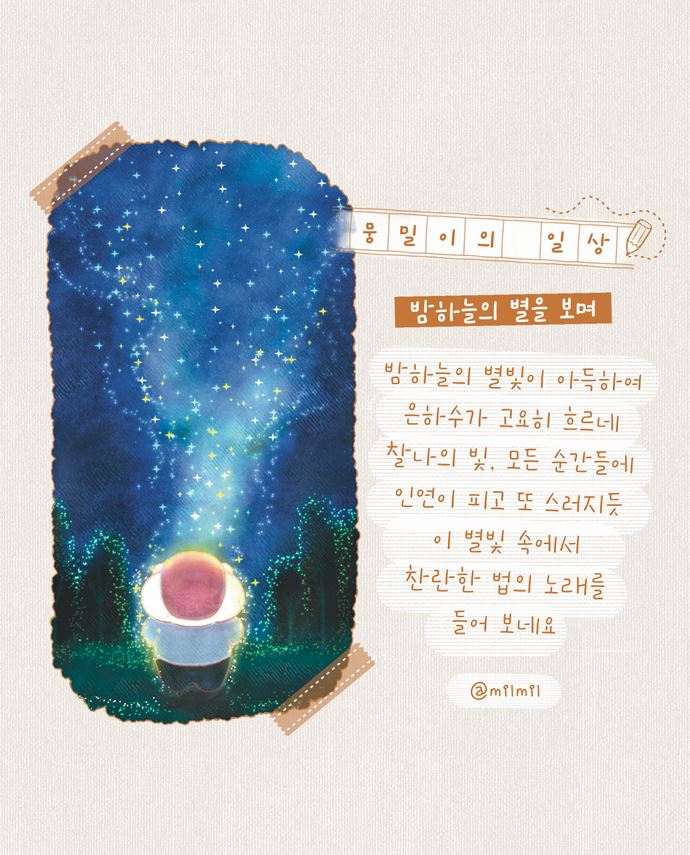 뭉밀이의 일상
밤하늘의 별을 보며
밤하늘의 별빛이 아득하여
은하수가 고요히 흐르네
찰나의 빛, 모든 순간들에
인연이 피고 또 스러지듯
이 별빛 속에서
찬란한 법의 노래를
들어 보네요
@milmil